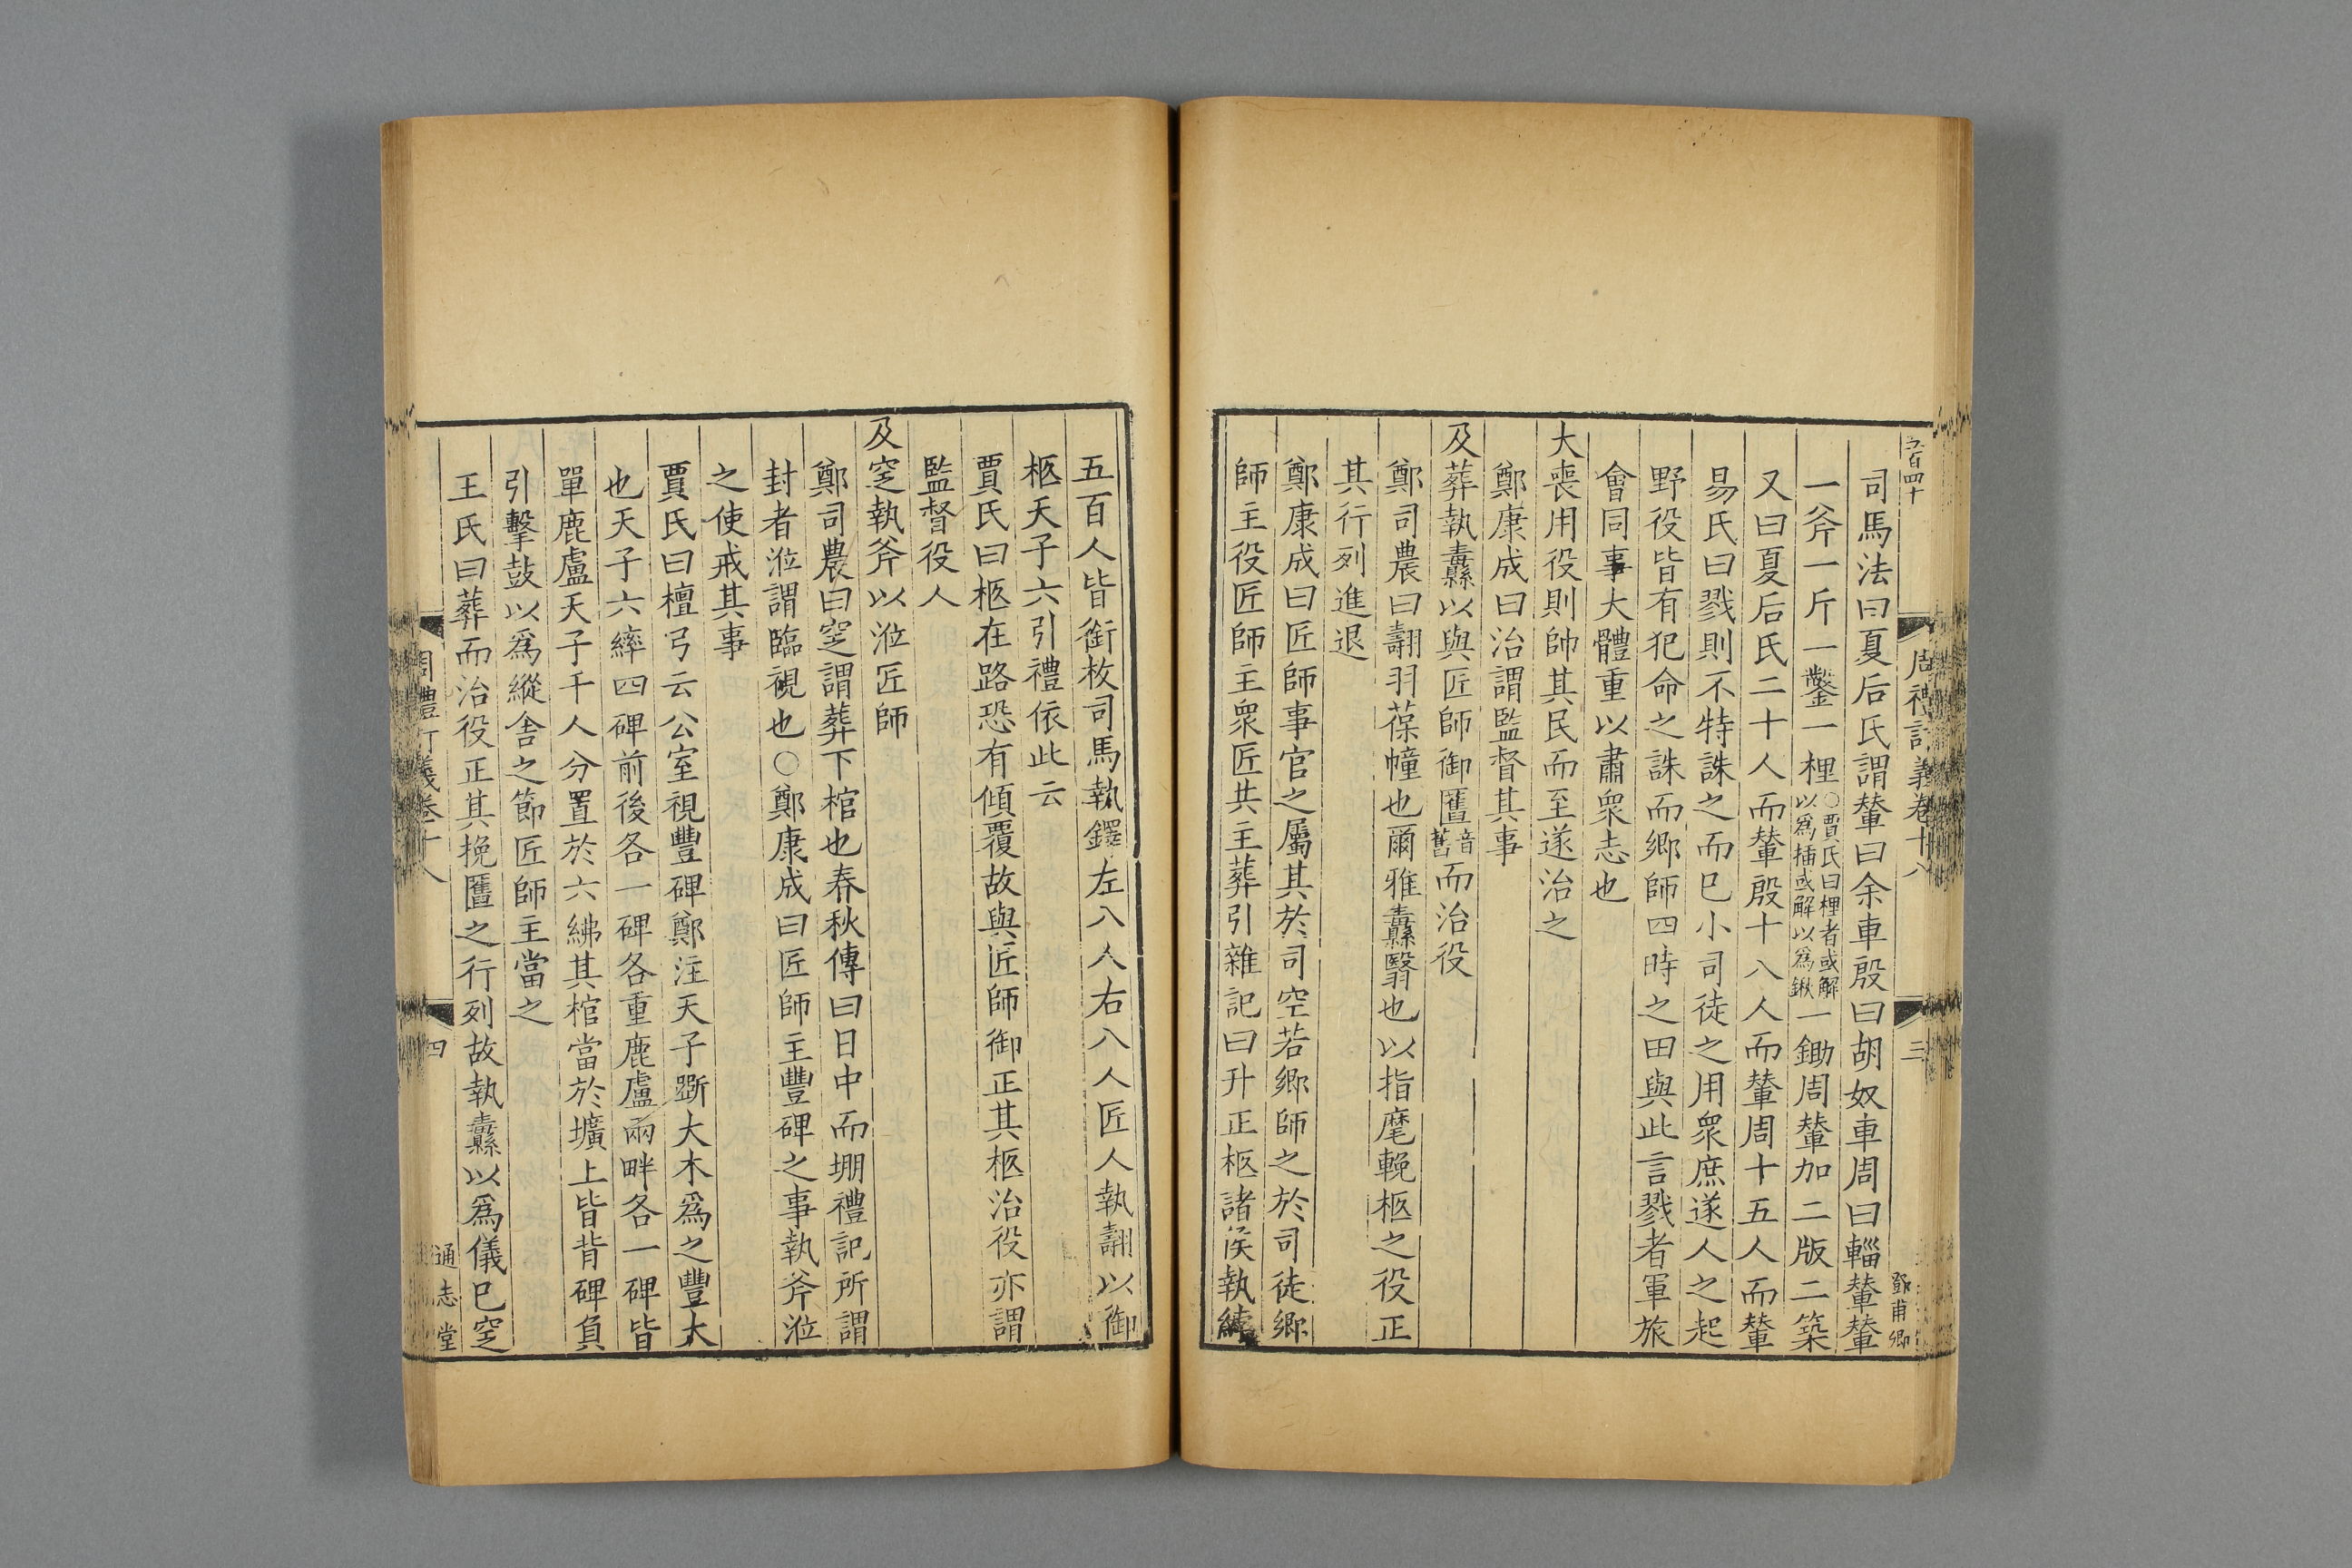 司馬法曰夏后氏謂輦曰余車殷曰胡奴車周曰輜輦輦
一斧一斤一鑿一梩○賈氏曰梩者或解以爲插或解以爲鍬一鋤周輦加二版二築
又曰夏后氏二十人而輦殷十八人而輦周十五人而輦
易氏曰戮則不特誅之而巳小司徒之用眾庶遂人之起
野役皆有犯命之誅而鄉師四時之田與此言戮者軍旅
會同事大體重以肅眾志也
大喪用役則帥其民而至遂治之
鄭康成曰治謂監督其事
及葬執纛以與匠師御匶音舊而治役
鄭司農曰翿羽葆幢也爾雅纛翳也以指麾輓柩之役正
其行列進退
鄭康成曰匠師事官之屬其於司空若鄉師之於司徒鄉
師主役匠師主眾匠共主葬引雜記曰升正柩諸侯執綍
周禮訂義卷十八
三
鄧甫卿
五百四十
五百人皆銜枚司馬執鐸左八人右八人匠人執翿以御
柩天子六引禮依此云
賈氏曰柩在路恐有傾覆故與匠師御正其柩治役亦謂
監督役人
及窆執斧以涖匠師
鄭司農曰窆謂葬下棺也春秋傳曰日中而堋禮記所謂
封者涖謂臨視也○鄭康成曰匠師主豐碑之事執斧涖
之使戒其事
賈氏曰檀弓云公室視豐碑鄭注天子斲大木爲之豐大
也天子六繂四碑前後各一碑各重鹿盧兩畔各一碑皆
單鹿盧天子千人分置於六紼其棺當於壙上皆背碑負
引擊鼓以爲縱舍之節匠師主當之
王氏曰葬而治役正其挽匶之行列故執纛以爲儀巳窆
周禮訂義卷十八
四
通志堂